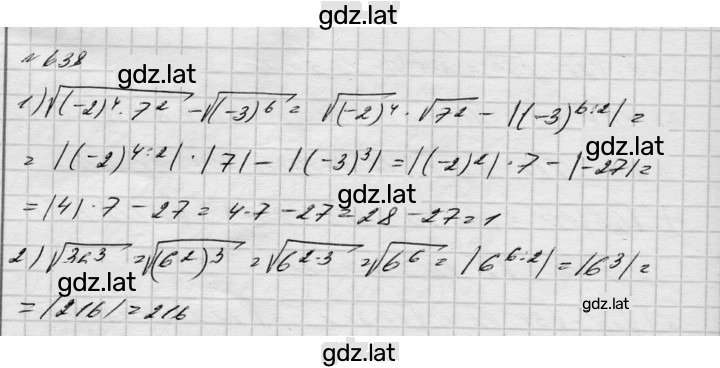 gdz.lat
№ 638
gdz.lat
1) √((-2)⁴·7²) - √((-3)⁶) = √((-2)⁴) · √(7²) - |(-3)^(6:2)| =
= |(-2)^(4:2)| · |7| - |(-3)³| = |(-2)²| · 7 - |-27| =
gdz.lat
gdz.lat
= |4| · 7 - 27 = 4·7 - 27 = 28 - 27 = 1
2) √(36³) = √((6²)³) = √(6^(2·3)) = √(6⁶) = |6^(6:2)| = |6³| =
gdz.lat
= |216| = 216
gdz.lat
gdz.lat